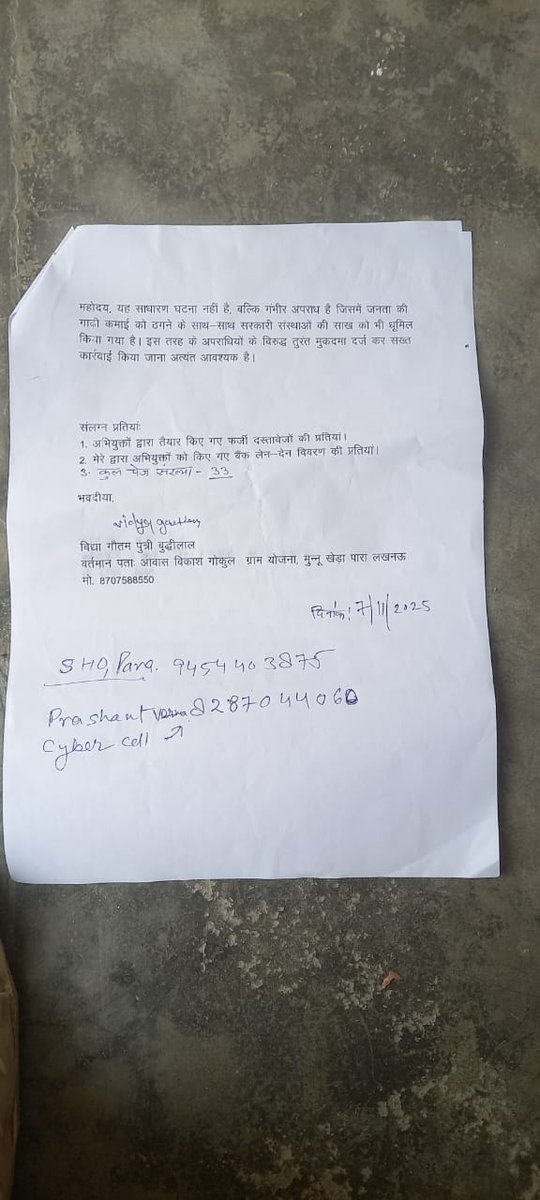 महोदय, यह साधारण घटना नहीं है, बल्कि गंभीर अपराध है जिसमें जनता की
गाढी कमाई को ठगने के साथ–साथ सरकारी संस्थाओं की साख को भी धूमिल
किया गया है। इस तरह के अपराधियों के विरुद्ध तुरंत मुकदमा दर्ज कर सख्त
कार्रवाई किया जाना अत्यंत आवश्यक है।
संलग्न प्रतियां:
1. अभियुक्तों द्वारा तैयार किए गए फर्जी दस्तावेजों की प्रतियां।
2. मेरे द्वारा अभियुक्तों को किए गए बैंक लेन–देन विवरण की प्रतियां।
3. कुल पेज संख्या - 33
भवदीया,
vidya gautam
विद्या गौतम पुत्री बुद्धीलाल
वर्तमान पताः आवास विकाश गोकुल ग्राम योजना, मुन्नू खेड़ा पारा लखनऊ
मो. 8707588550
दिनांक: 7/11/2025
SHO, Para. 9454403875
Prashant Verma 8287044060
Cyber cell